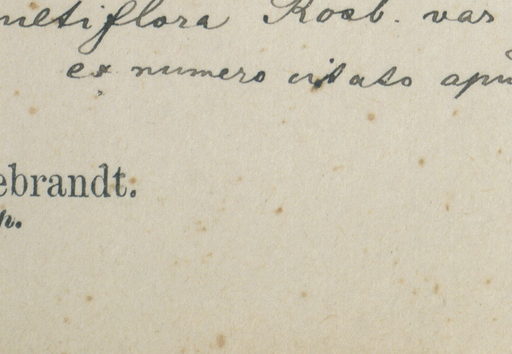 multiflora Roxb. var
ex numero citato apu
ebrandt.